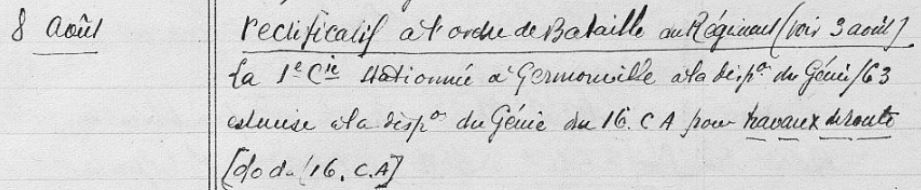 8 août rectificatif à l'ordre de Bataille du Régiment (voir 3 août)
la 1e Cie stationnée à Germonville à la dispon du Génie/63
est mise à la dispon du Génie du 16. C A pour travaux de route
[do du (16. C.A]